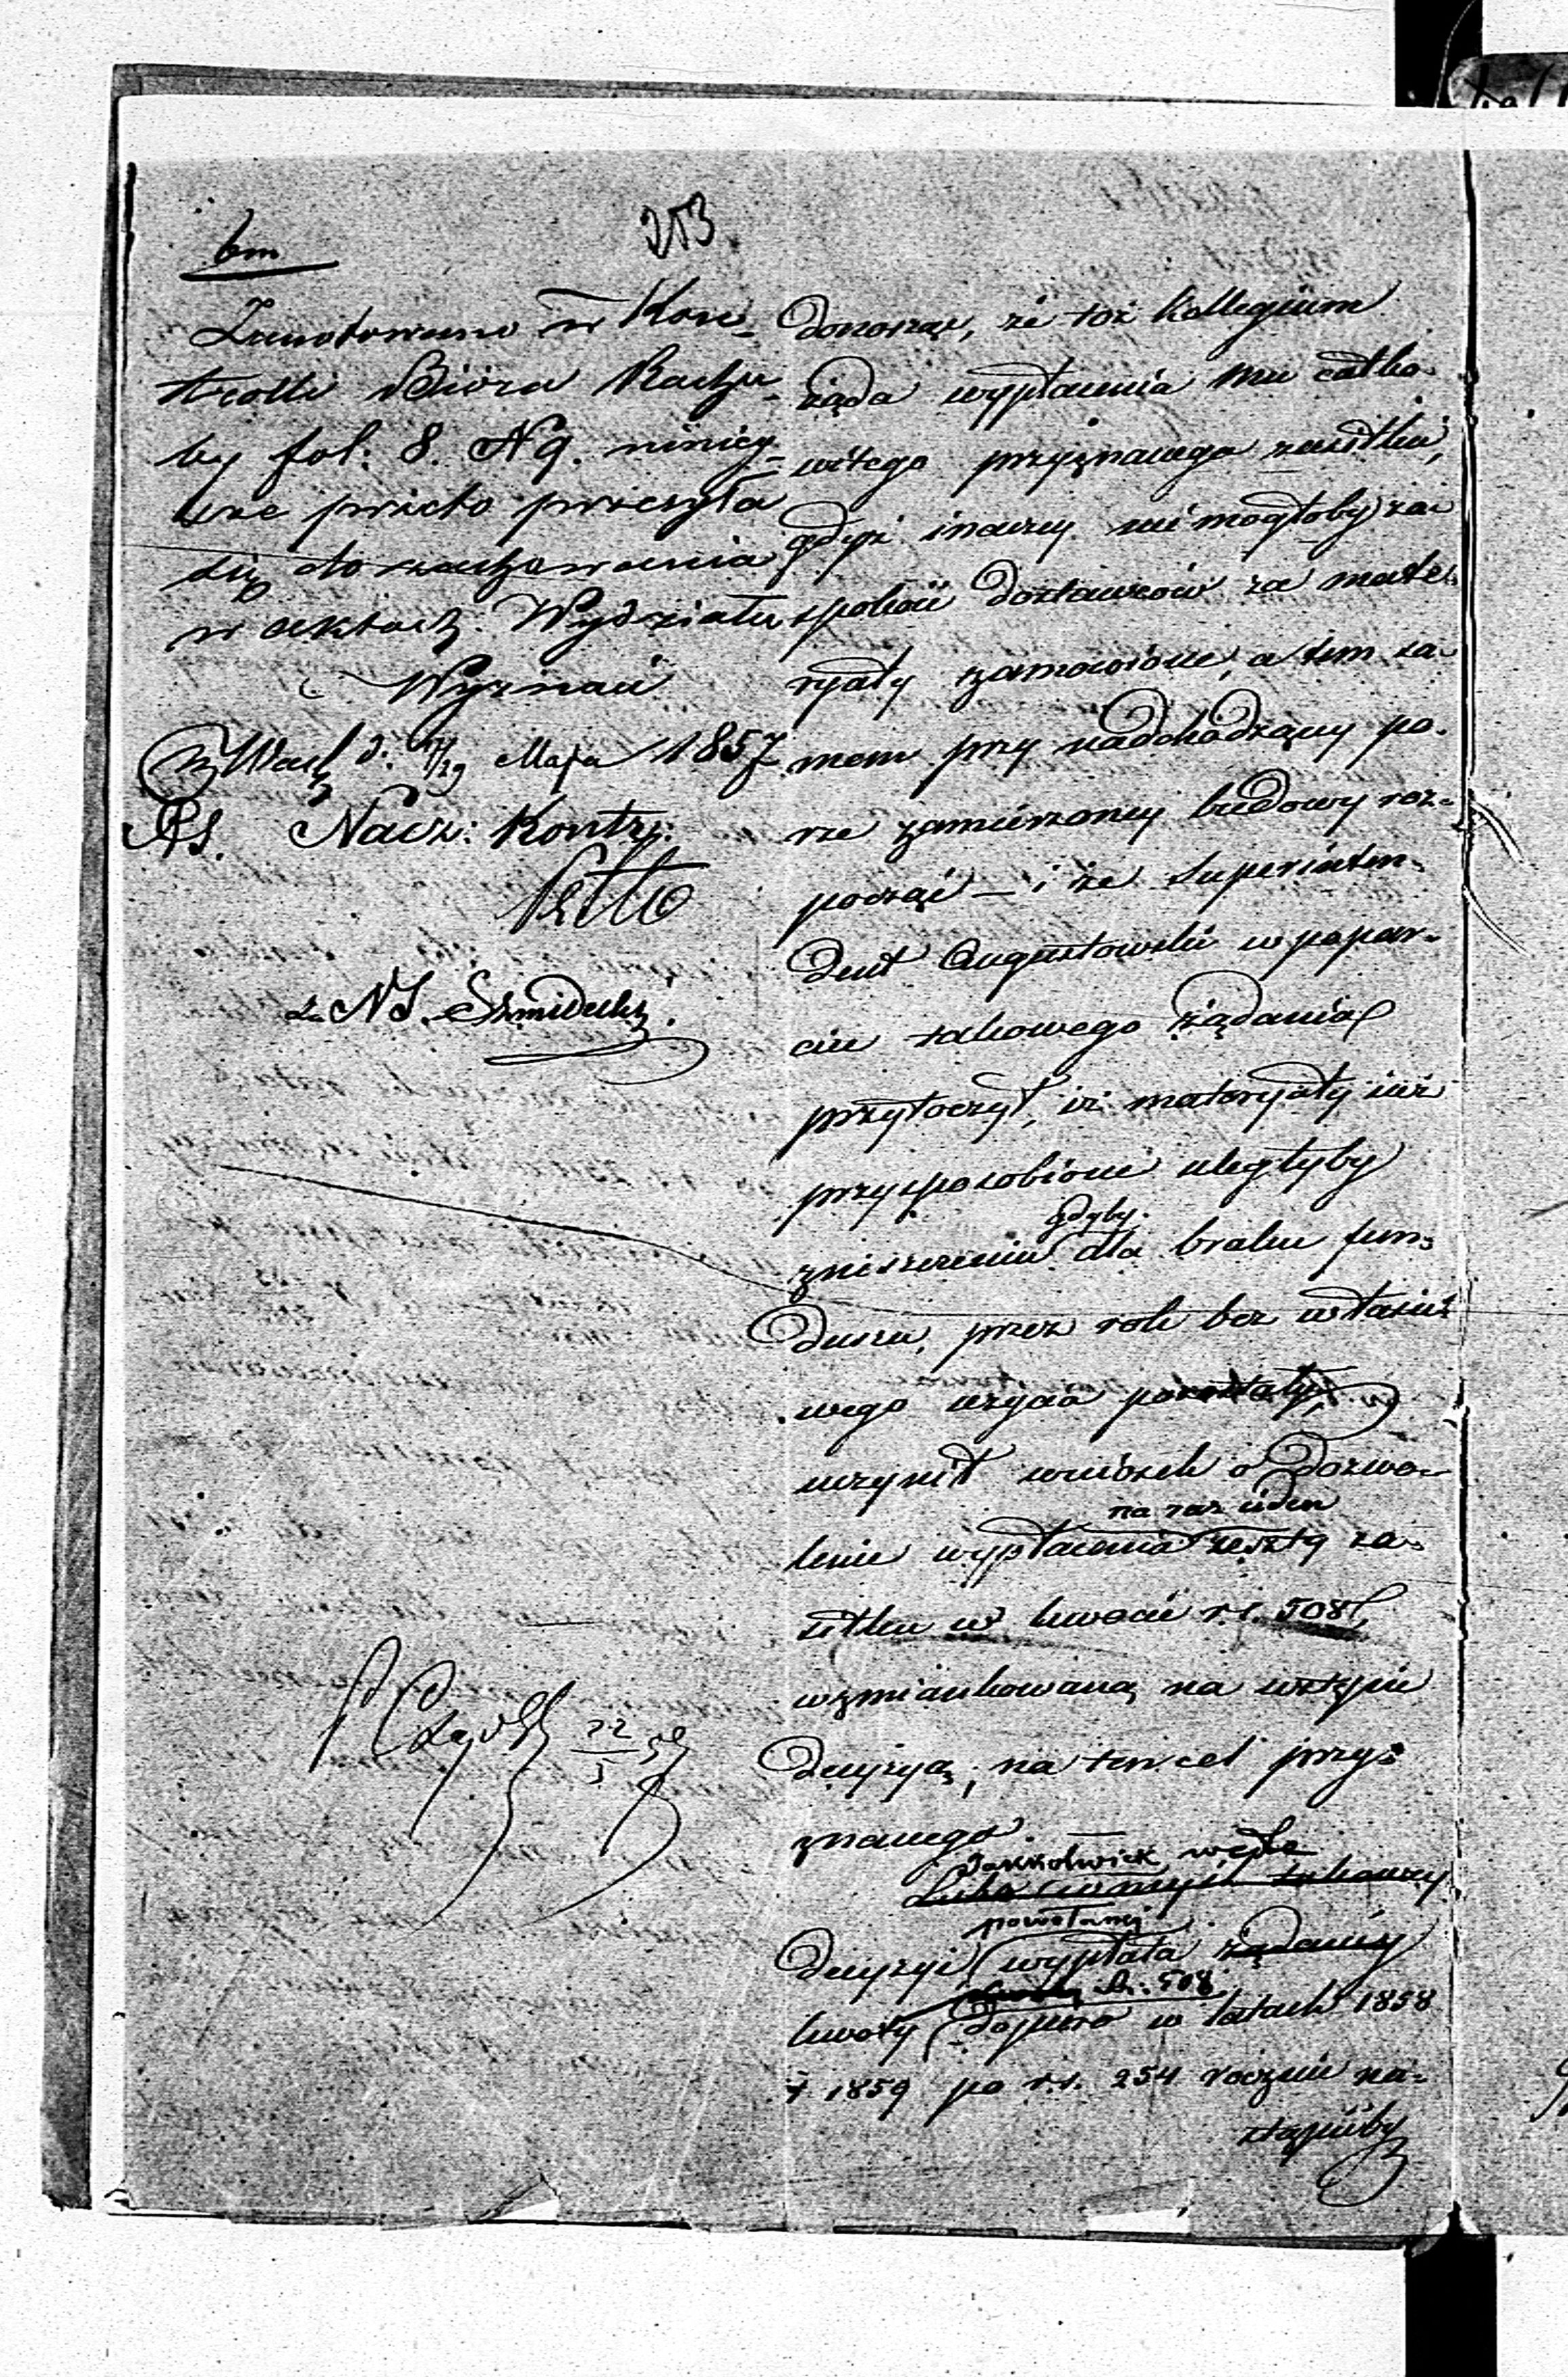 253
bm
Zanotowano w Kon-
trolli Bióra Rachu-
by fol: 8. N 9. niniej-
sze przeto przesyła
się do zachowania
w aktach Wydziału
Wyznań
w Warsz d. 17/29 Maja 1857
Nacz: Kontr:
z. N S. Szmidecki
22/5 57
donosząc, że toż Kollegium
żąda wypłacenia mu całko-
witego przyznanego zasiłku,
gdyż inaczej niemogłoby zai
spokoić dostawców za mate-
ryały zamówione, a tem sa-
mem przy nadchodzącej po-
rze zamierzonej budowy roz-
począć – i że Superinten-
dent Augustowski w popar-
ciu takowego żądania
przytoczył, iż materyały już
przysposobione uległyby
gdyby
zniszczeniu dla braku fun-
duszu, przez rok bez właści-
wego użycia pozostały,
uczynił wniosek o dozwo-
na raz ieden
lenie wypłacenia reszty za-
siłku w kwocie r.s. 508,
wzmiankowaną na wstępie
decyzyą, na ten cel przy-
znanego.
Jakkolwiek wedle
Lubo w myśl takowej
powołanej
decyzyi wypłata żądanej
rs. 508
kwoty dopiero w latach 1858
i 1859 po r.s. 254 rocznie na-
stąpićby